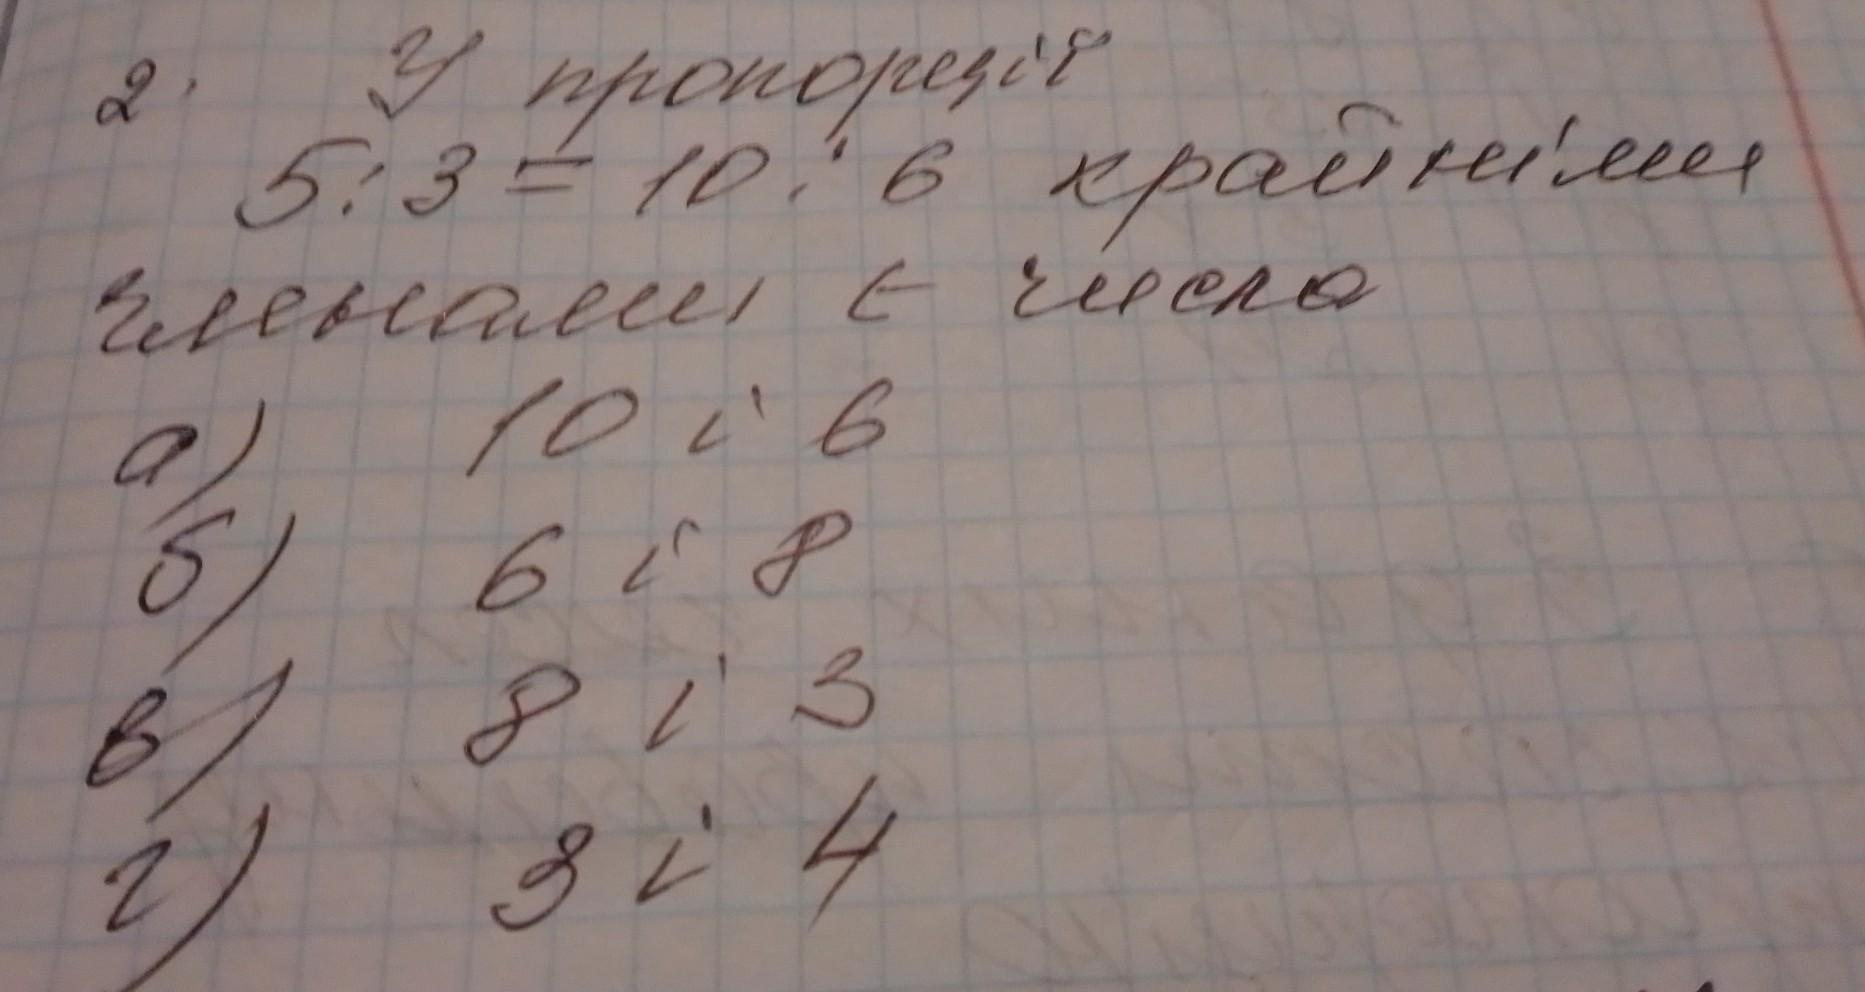 2. У пропорції
5:3 = 10:6 крайніми
членами є числа
а) 10 і 6
б) 6 і 8
в) 8 і 3
г) 3 і 4